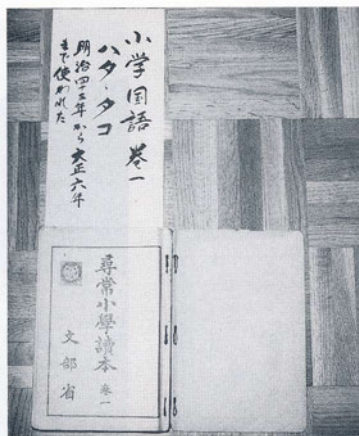 小学国語 巻一
ハタ・タコ
明治四十三年から大正六年
まで使われた
尋常小學讀本 巻一
文部省